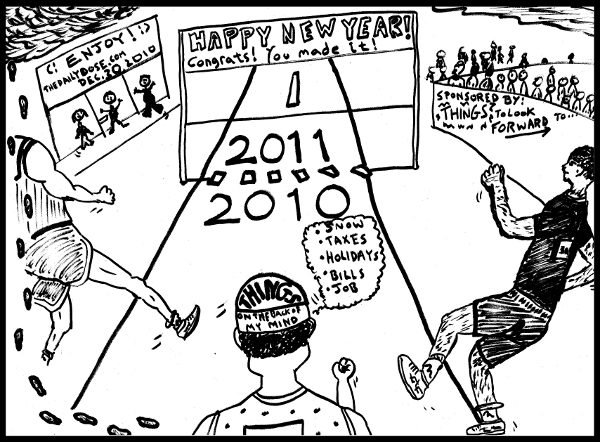 HAPPY NEW YEAR!
Congrats! You made it!
(: ENJOY! :)
THEDAILYDOSE.COM
DEC. 30, 2010
SPONSORED BY:
THINGS TO LOOK
FORWARD TO...
2011
2010
• SNOW
• TAXES
• HOLIDAYS
• BILLS
• JOB
THINGS
ON THE BACK OF
MY MIND